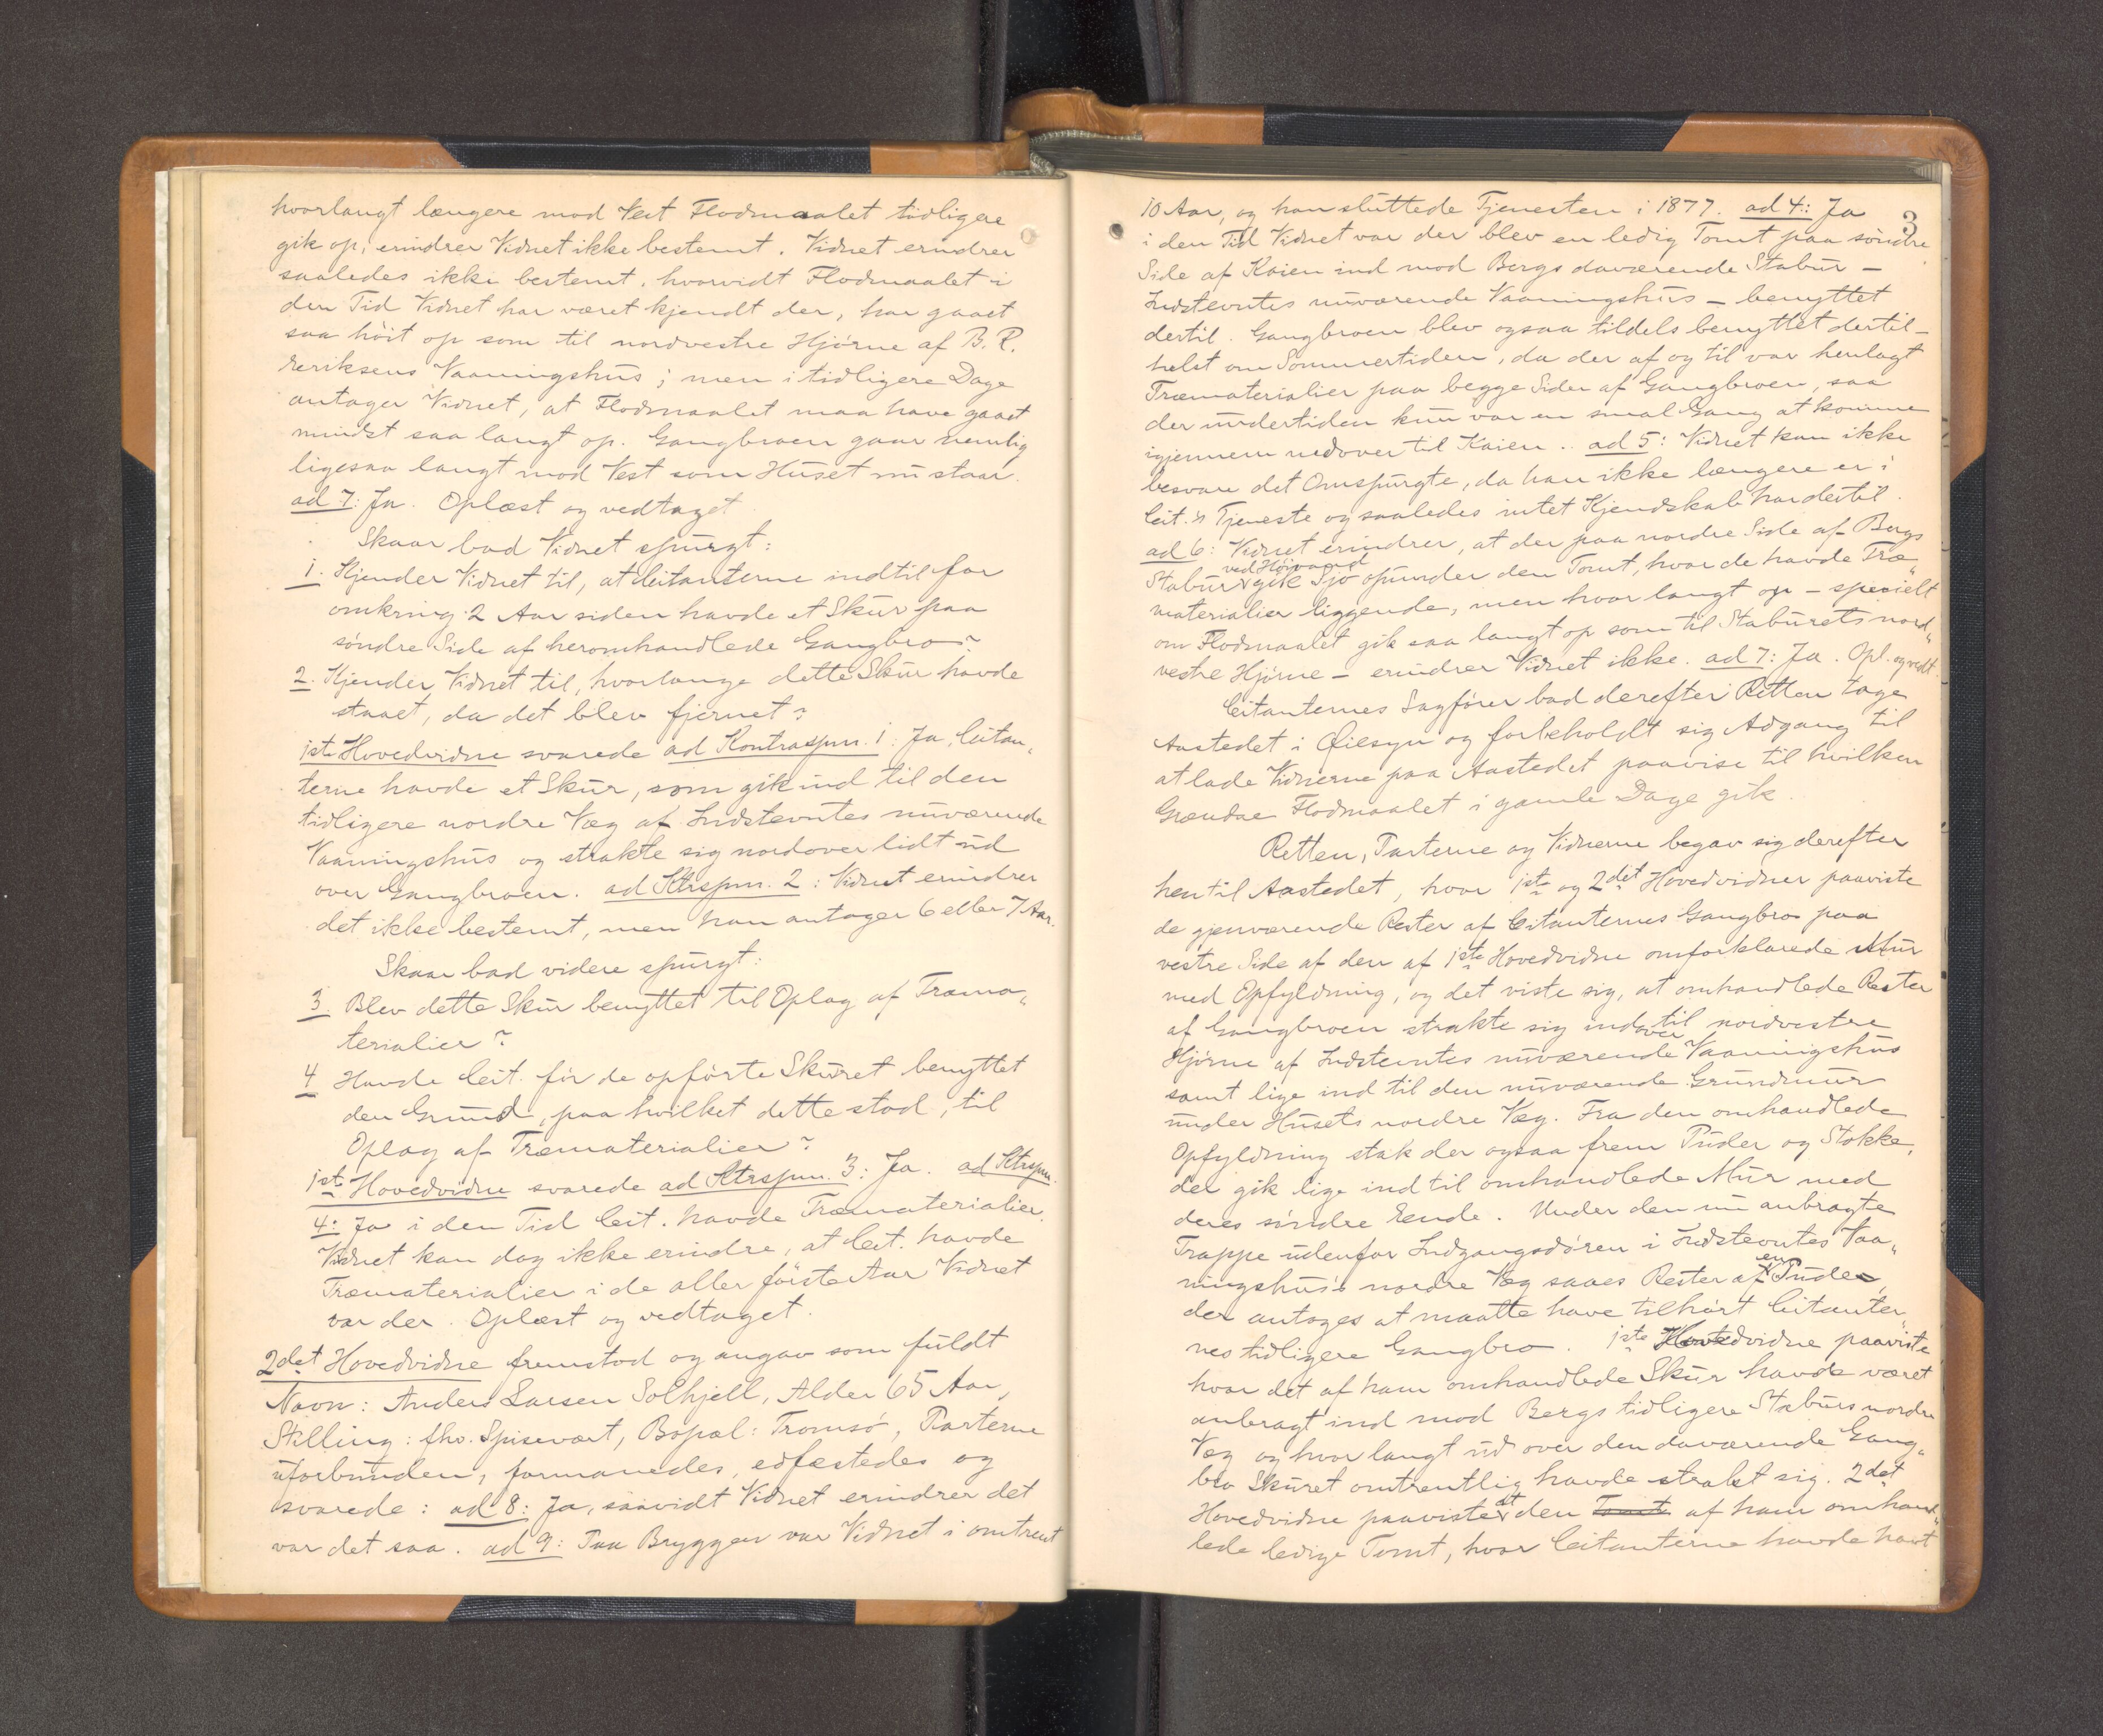 hvorlangt længere mod Vest Flodmaalet tidligere
gik op, erindrer Vidnet ikke bestemt. Vidnet erindrer
saaledes ikke bestemt, hvorvidt Flodmaalet i
den Tid Vidnet har været kjendt der, har gaaet
saa höit op som til nordvestre Hjörne af B. R.
Eeriksens Vaaningshus; men i tidligere Dage
antager Vidnet, at Flodmaalet maa have gaaet
mindst saa langt op. Gangbroen gaar nemlig
ligesaa langt mod Vest som Huset nu staar.
ad 7: Ja. Oplæst og vedtaget.
Skaar bad Vidnet spurgt:
1. Kjender Vidnet til, at Citanterne indtil for
omkring 2 Aar siden havde et Skur paa
söndre Side af heromhandlede Gangbro?
2. Kjender Vidnet til, hvorlange dette Skur havde
staaet, da det blev fjernet?
1ste Hovedvidne svarede ad Kontraspm. 1: Ja, Citan„
terne havde et Skur, som gik ind til den
tidligere nordre Væg af Indstevntes nuværende
Vaaningshus og strakte sig nordover lidt ud
over Gangbroen. ad Ktrspm. 2: Vidnet erindrer
det ikke bestemt, men han antager 6 eller 7 Aar.
Skaar bad videre spurgt:
3. Blev dette Skur benyttet til Oplag af Træma„
terialier?
4 Havde Cit. för de opförte Skuret benyttet
den Grund, paa hvilket dette stod, til
Oplag af Træmaterialier?
1ste Hovedvidne svarede ad Ktrspm. 3: Ja. ad Ktrspm.
4: Ja i den Tid Cit. havde Træmaterialier.
Vidnet kan dog ikke erindre, at Cit. havde
Træmaterialier i de aller förste Aar Vidnet
var der. Oplæst og vedtaget.
2det Hovedvidne fremstod og angav som fuldt
Navn: Anders Larsen Solhjell, Alder 65 Aar,
Stilling: fhv. Spisevært, Bopæl: Tromsö, Parterne
uforbunden, formanedes, edfæstedes og
svarede: ad 8: Ja, saavidt Vidnet erindrer det
var det saa. ad 9: Paa Bryggen var Vidnet i omtrent
3
10 Aar, og han sluttede Tjenesten i 1877. ad 4: Ja
i den Tid Vidnet var der blev en ledig Tomt paa söndre
Side af Kaien ind mod Bergs daværende Stabur –
Indstevntes nuværende Vaaningshus – benyttet
dertil. Gangbroen blev ogsaa tildels benyttet dertil –
helst om Sommertiden, da der af og til var henlagt
Træmaterialier paa begge Sider af Gangbroen, saa
der undertiden kun var en smal Gang at komme
igjennem nedover til Kaien. ad 5: Vidnet kan ikke
besvare det Omspurgte, da han ikke længere er i
Cit.'s Tjeneste og saaledes intet Kjendskab har dertil.
ad 6: Vidnet erindrer, at der paa nordre Side af Bergs
ved Höivand
Stabur gik Sjö opunder den Tomt, hvor de havde Træ„
materialier liggende, men hvor langt op – specielt
om Flodmaalet gik saa langt op som til Staburets nord„
vestre Hjörne – erindrer Vidnet ikke. ad 7: Ja. Opl. og vedt.
Citanternes Sagförer bad derefter Retten tage
Aastedet i Öiesyn og forbeholdt sig Adgang til
at lade Vidnerne paa Aastedet paavise til hvilken
Grændse Flodmaalet i gamle Dage gik.
Retten, Parterne og Vidnerne begav sig derefter
hen til Aastedet, hvor 1ste og 2det Hovedvidner paaviste
de gjenværende Rester af Citanternes Gangbro paa
vestre Side af den af 1ste Hovedvidne omforklarede Mur
med Opfyldning, og det viste sig, at omhandlede Rester
af Gangbroen strakte sig indover til nordvestre
Hjörne af Indstevntes nuværende Vaaningshus
samt lige ind til den nuværende Grundmur
under Husets nordre Væg. Fra den omhandlede
Opfyldning stak der ogsaa frem Puder og Stokke,
der gik lige ind til omhandlede Mur med
deres söndre Ende. Under den nu anbragte
Trappe udenfor Indgangsdören i Indstevntes Vaa„
ningshus's nordre Væg saaes Rester af en Pude,
der antoges at maatte have tilhört Citanter„
nes tidligere Gangbro. 1ste Hovedvidne paaviste
hvor det af ham omhandlede Skur havde været
anbragt ind mod Bergs tidligere Staburs nordre
Væg og hvor langt ud over den daværende Gang„
bro Skuret omtrentlig havde strakt sig. 2det
Hovedvidne paaviste at den Tomt af ham omhand„
lede ledige Tomt, hvor Citanterne havde havt